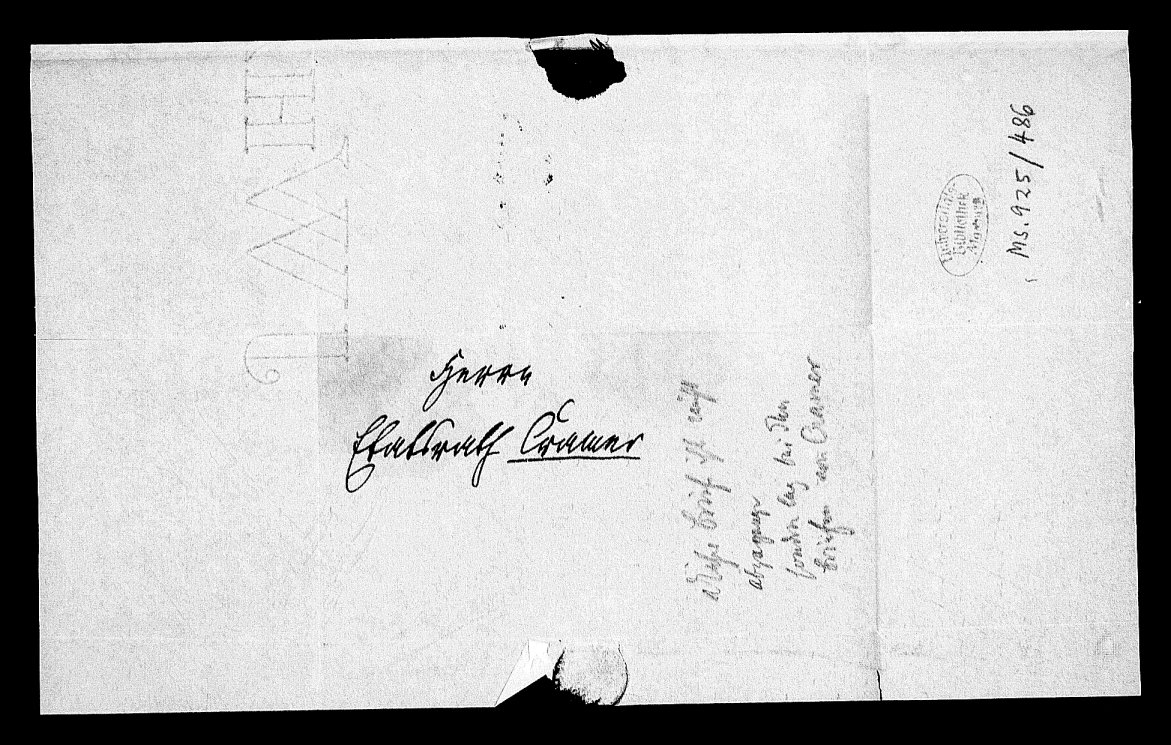 Herrn
Etatsrath Cramer
Dieser Brief ist nicht
abgegangen
sondern lag bei den
Briefen von Cramer
Universitäts-
Bibliothek
Marburg
Ms. 925/486